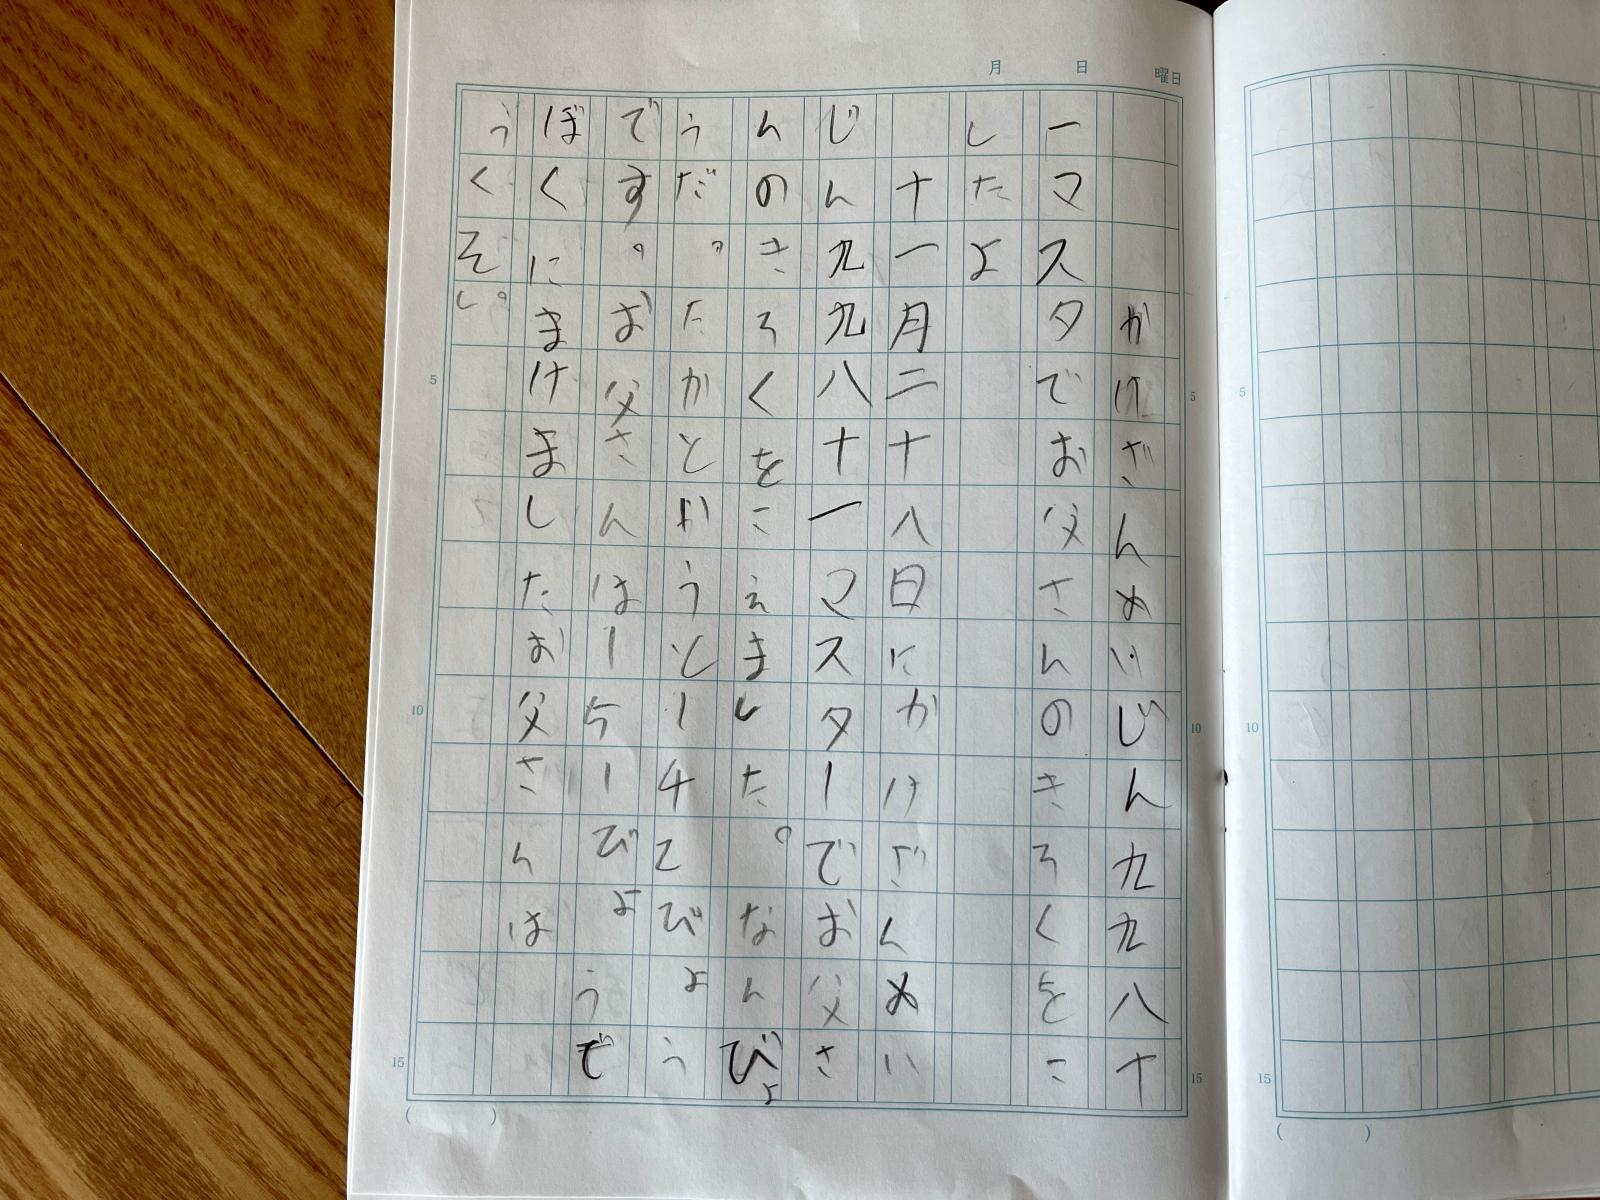 月 日 曜日
かけざんめいじん九九八十
一マスタでお父さんのきろくをこ
したよ
十一月二十八日にかけざんめい
じん九九八十一マスターでお父さ
んのきろくをこえました。なんびょ
うだったかとゆうと142びょう
です。お父さんは151びょうで
ぼくにまけましたお父さんは
うくそじ。
5
10
15
5
10
15
5
10
15